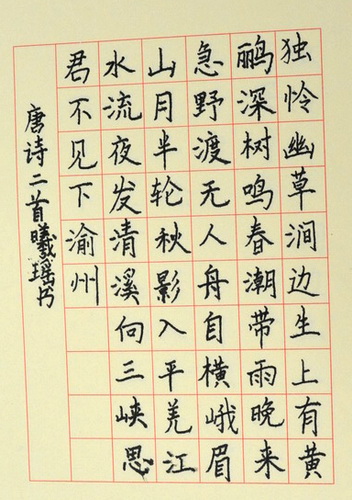 独怜幽草涧边生上有黄
鹂深树鸣春潮带雨晚来
急野渡无人舟自横峨眉
山月半轮秋影入平羌江
水流夜发清溪向三峡思
君不见下渝州
唐诗二首曦瑶书